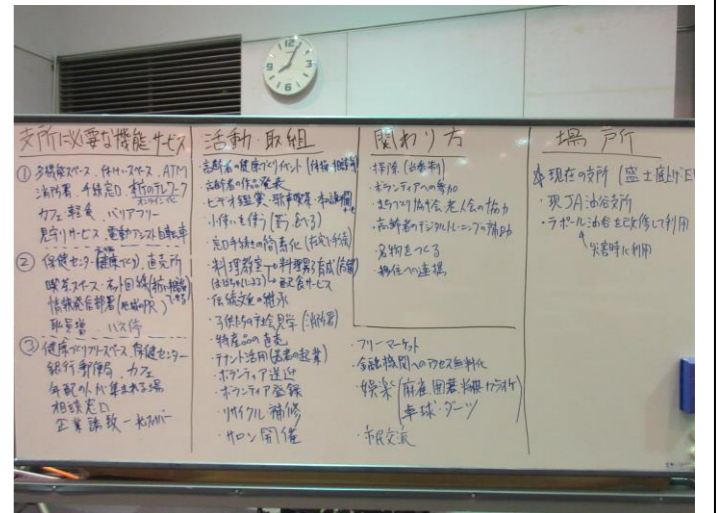 支所に必要な機能・サービス
①多機能スペース・休けいスペース・ATM
消防署・手続窓口
オンライン化
カフェ・軽食・バリアフリー
見守りサービス 電動アシスト自転車
②保健センター(健康づくり)・直売所
喫茶スペース・ネット回線
情報発信部署(地域のPR)
駐車場・バス停
③健康づくりフリースペース・保健センター
銀行・郵便局・カフェ
年配の人が集まれる場
相談窓口
企業誘致―光ファイバー
活動・取組
・高齢者の健康づくりイベント
・高齢者の作品発表
・ビデオ鑑賞・歌声喫茶
・小使いを使う
・窓口手続きの簡素化
・料理教室→料理男子育成
→配食サービス
・伝統文化の継承
・子供たちの社会見学(消防署)
・特産品の直売
・テナント活用(若者の起業)
・ボランティア送迎
・ボランティア登録
・リサイクル補修
・サロン開催
関わり方
・掃除
・ボランティアへの参加
・まちづくり協議会 老人会の協力
・高齢者のデジタルトレーニングの補助
・名物をつくる
・フリーマーケット
・金融機関へのアクセス無料化
・娯楽(麻雀・囲碁・将棋・カラオケ
卓球・ダーツ
・市民交流
場所
現在の支所
・現JA油谷支所
・ラポール油谷を改修して利用
災害時に利用